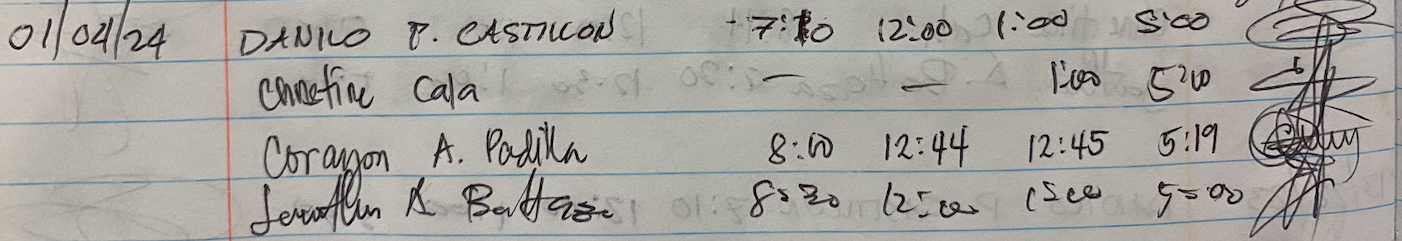 01/04/24 DANILO P. CASTILLON 7:10 12:00 1:00 5:00
Cala — — 1:00 5:00
Corazon A. Padilla 8:10 12:44 12:45 5:19
A 8:30 12:00 1:00 5:00